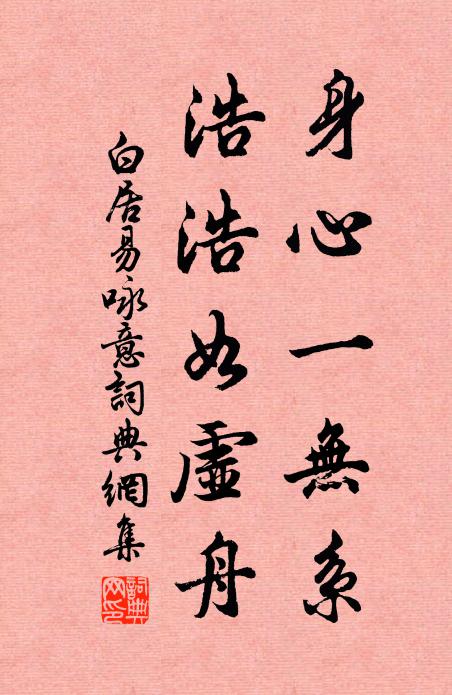 身心一無系
浩浩如虛舟
白居易咏意詞典網集
詞典网印